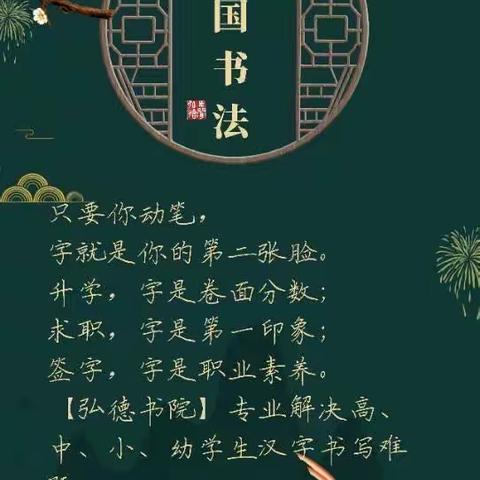 国书法
只要你动笔，
字就是你的第二张脸。
升学，字是卷面分数；
求职，字是第一印象；
签字，字是职业素养。
【弘德书院】专业解决高、
中、小、幼学生汉字书写难